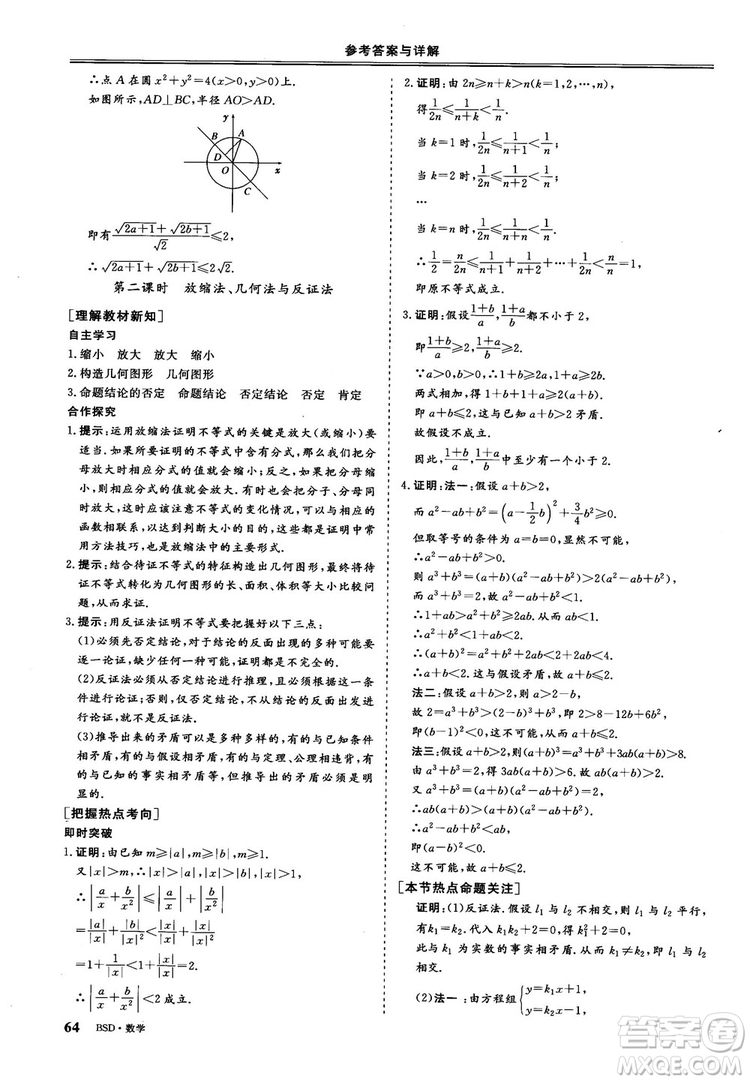 参考答案与详解
∴点 A 在圆 x²+y²=4(x>0,y>0)上.
如图所示,AD⊥BC,半径 AO>AD.
y
B
A
D
O
x
C
即有(√(2a+1)+√(2b+1))/√2≤2,
∴√(2a+1)+√(2b+1)≤2√2.
第二课时 放缩法、几何法与反证法
[理解教材新知]
自主学习
1. 缩小 放大 放大 缩小
2. 构造几何图形 几何图形
3. 命题结论的否定 命题结论 否定结论 否定 肯定
合作探究
1. 提示：运用放缩法证明不等式的关键是放大(或缩小)要
适当.如果所要证明的不等式中含有分式,那么我们把分
母放大时相应分式的值就会缩小;反之,如果把分母缩
小,则相应分式的值就会放大.有时也会把分子、分母同
时放大,这时应该注意不等式的变化情况,可以与相应的
函数相联系,以达到判断大小的目的,这是证明中常用的
方法技巧,也是放缩法中的主要形式.
2. 提示：结合待证不等式的特征构造出几何图形,将待
证不等式转化为几何图形的长、面积、体积等大小问题,
从而求证.
3. 提示：用反证法证明不等式要把握好以下三点:
(1)必须先否定结论,对于结论的反面出现的多种可能
要逐一论证,缺少任何一种可能,证明都是不完全的.
(2)反证法必须从否定结论进行推理,且必须根据这一
条件进行论证;否则,仅否定结论,不从结论的反面出发
进行论证,就不是反证法.
(3)推导出来的矛盾可以是多种多样的,有的与已知条件
相矛盾,有的与假设相矛盾,有的与定理、公理相违背,有
的与已知的事实相矛盾等,但推导出的矛盾必须是明
显的.
[把握热点考向]
即时突破
1. 证明：由已知 m≥|a|,m≥|b|,m≥1.
又|x|>m,∴|x|>|a|,|x|>|b|,|x|>1.
∴|a/x+b/x²|≤|a/x|+|b/x²|
=|a|/|x|+|b|/|x²|<|x|/|x|+|x|/|x|²
=1+1/|x|<1+|x|/|x|=2.
∴|a/x+b/x²|<2成立.
2. 证明：由 2n≥n+k>n(k=1,2,…,n),
得1/2n≤1/(n+k)<1/n.
当 k=1 时,1/2n≤1/(n+1)<1/n
当 k=2 时,1/2n≤1/(n+2)<1/n
…
当 k=n 时,1/2n≤1/(n+n)<1/n
∴1/2=n/2n≤1/(n+1)+1/(n+2)+…+1/2n<n/n=1.
即原不等式成立.
3. 证明：假设(1+b)/a,(1+a)/b都不小于 2,
即(1+b)/a≥2,(1+a)/b≥2.
∵a>0,b>0,∴1+b≥2a,1+a≥2b.
两式相加,得 1+b+1+a≥2(a+b),
即 a+b≤2,这与已知 a+b>2 矛盾.
故假设不成立.
因此,(1+b)/a,(1+a)/b中至少有一个小于 2.
4. 证明：法一：假设 a+b>2,
而 a²-ab+b²=(a-½b)²+¾b²≥0,
但取等号的条件为 a=b=0,显然不可能,
∴a²-ab+b²>0.
则 a³+b³=(a+b)(a²-ab+b²)>2(a²-ab+b²),
而 a³+b³=2,故 a²-ab+b²<1.
∴1+ab>a²+b²≥2ab.从而 ab<1.
∴a²+b²<1+ab<2.
∴(a+b)²=a²+b²+2ab<2+2ab<4.
而由假设 a+b>2,得(a+b)²>4,
出现矛盾,故假设不成立,原结论成立,即 a+b≤2.
法二：假设 a+b>2,则 a>2-b,
故 2=a³+b³>(2-b)³+b³,即 2>8-12b+6b²,
即(b-1)²<0,这不可能,从而 a+b≤2.
法三：假设 a+b>2,则(a+b)³=a³+b³+3ab(a+b)>8.
由 a³+b³=2,得 3ab(a+b)>6.故 ab(a+b)>2.
又 a³+b³=(a+b)(a²-ab+b²)=2,
∴ab(a+b)>(a+b)(a²-ab+b²).
∴a²-ab+b²<ab,即(a-b)²<0.
这不可能,故 a+b≤2.
[本节热点命题关注]
证明：(1)反证法.假设 l₁ 与 l₂ 不相交,则 l₁ 与 l₂ 平行,
有 k₁=k₂.代入 k₁k₂+2=0,得 k₁²+2=0,
此与 k₁ 为实数的事实相矛盾.从而 k₁≠k₂,即 l₁ 与 l₂
相交.
(2)法一：由方程组{y=k₁x+1 y=k₂x-1
64 BSD·数学
答案圈
MXQE.COM